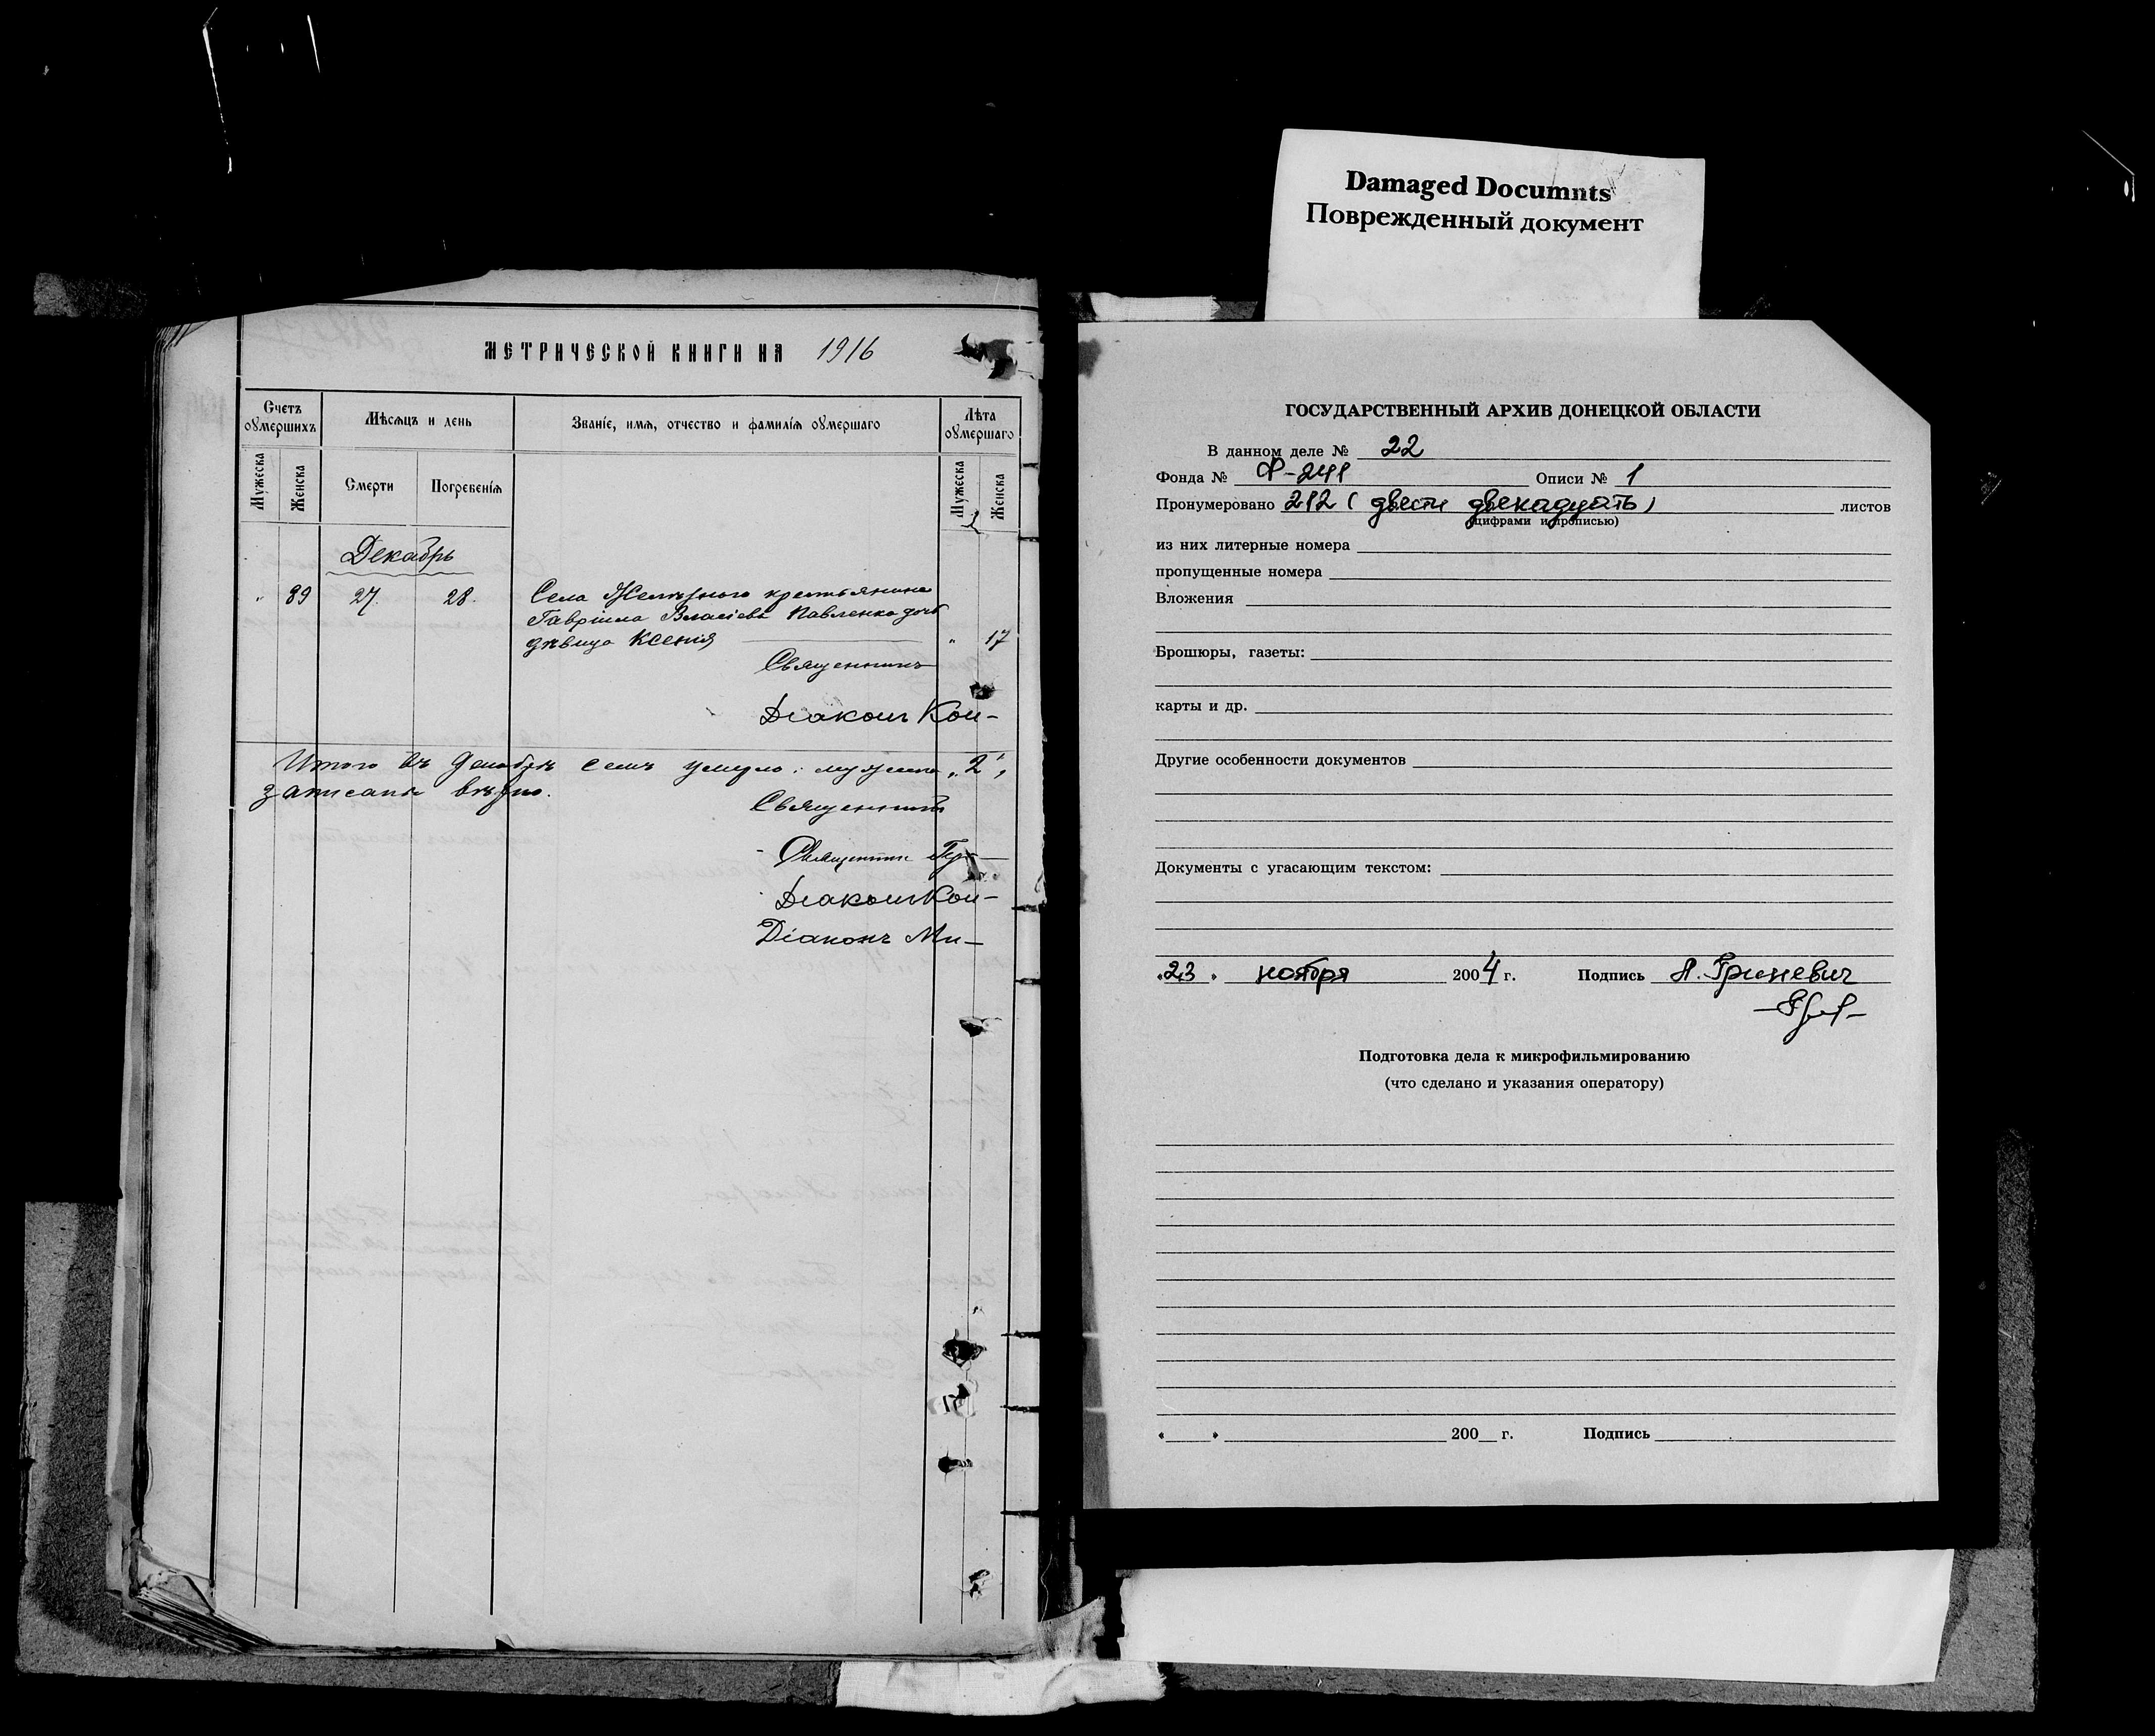 Damaged Documnts
Поврежденный документ
МЕТРИЧЕСКОЙ КНИГИ НА 1916
Счетъ оумершихъ
Мѣсяцъ и день
Званіе, имя, отчество и фамилія оумершаго
Лѣта оумершаго
Мужеска
Женска
Смерти
Погребенія
Мужеска
Женска
Декабрь
" 89 27. 28. Села Желѣзнаго крестьянина
Гавріила Власіева Павленко дочь
дѣвица Ксенія " 17
Священникъ
Діаконъ Кон-
Итого въ Декабрѣ семь умерло: мужеска „2",
записаны вѣрно.
Священникъ
Священникъ
Діаконъ Кон-
Діаконъ Ми-
ГОСУДАРСТВЕННЫЙ АРХИВ ДОНЕЦКОЙ ОБЛАСТИ
В данном деле № 22
Фонда № Ф-241 Описи № 1
Пронумеровано 212 (двести двенадцать) листов
(цифрами и прописью)
из них литерные номера
пропущенные номера
Вложения
Брошюры, газеты:
карты и др.
Другие особенности документов
Документы с угасающим текстом:
«23» ноября 2004 г. Подпись Л. Гриневич
Подготовка дела к микрофильмированию
(что сделано и указания оператору)
« » 200 г. Подпись